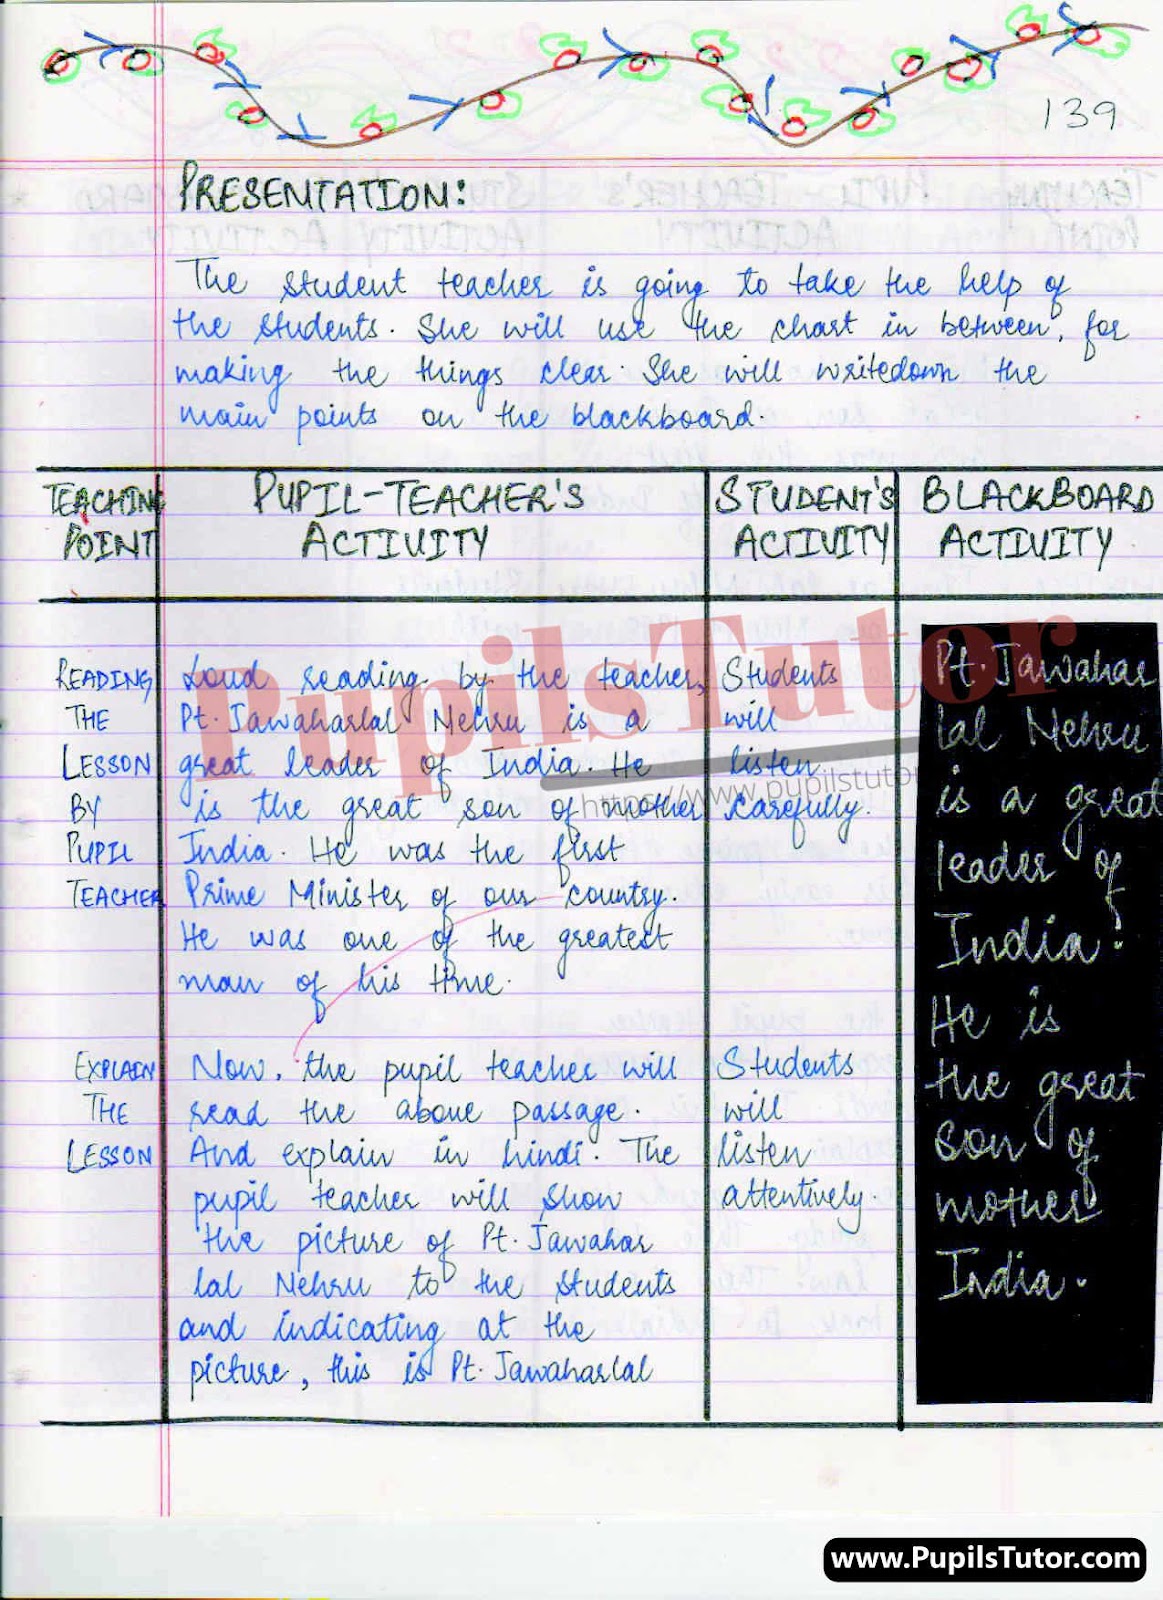 139
PRESENTATION:
The student teacher is going to take the help of
the students. She will use the chart in between, for
making the things clear. She will writedown the
main points on the blackboard.
TEACHING
POINT
PUPIL-TEACHER'S
ACTIVITY
STUDENT'S
ACTIVITY
BLACKBOARD
ACTIVITY
READING
THE
LESSON
BY
PUPIL
TEACHER
Loud reading by the teacher,
Pt. Jawaharlal Nehru is a
great leader of India. He
is the great son of mother
India. He was the first
Prime Minister of our country.
He was one of the greatest
man of his time.
Students
will
listen
carefully.
Pt. Jawahar
lal Nehru
is a great
leader of
India.
He is
the great
son of
mother
India.
EXPLAIN
THE
LESSON
Now, the pupil teacher will
read the above passage.
And explain in hindi. The
pupil teacher will show
the picture of Pt. Jawahar
lal Nehru to the students
and indicating at the
picture, this is Pt. Jawaharlal
Students
will
listen
attentively.
PupilsTutor
https://www.pupilstutor
www.PupilsTutor.com